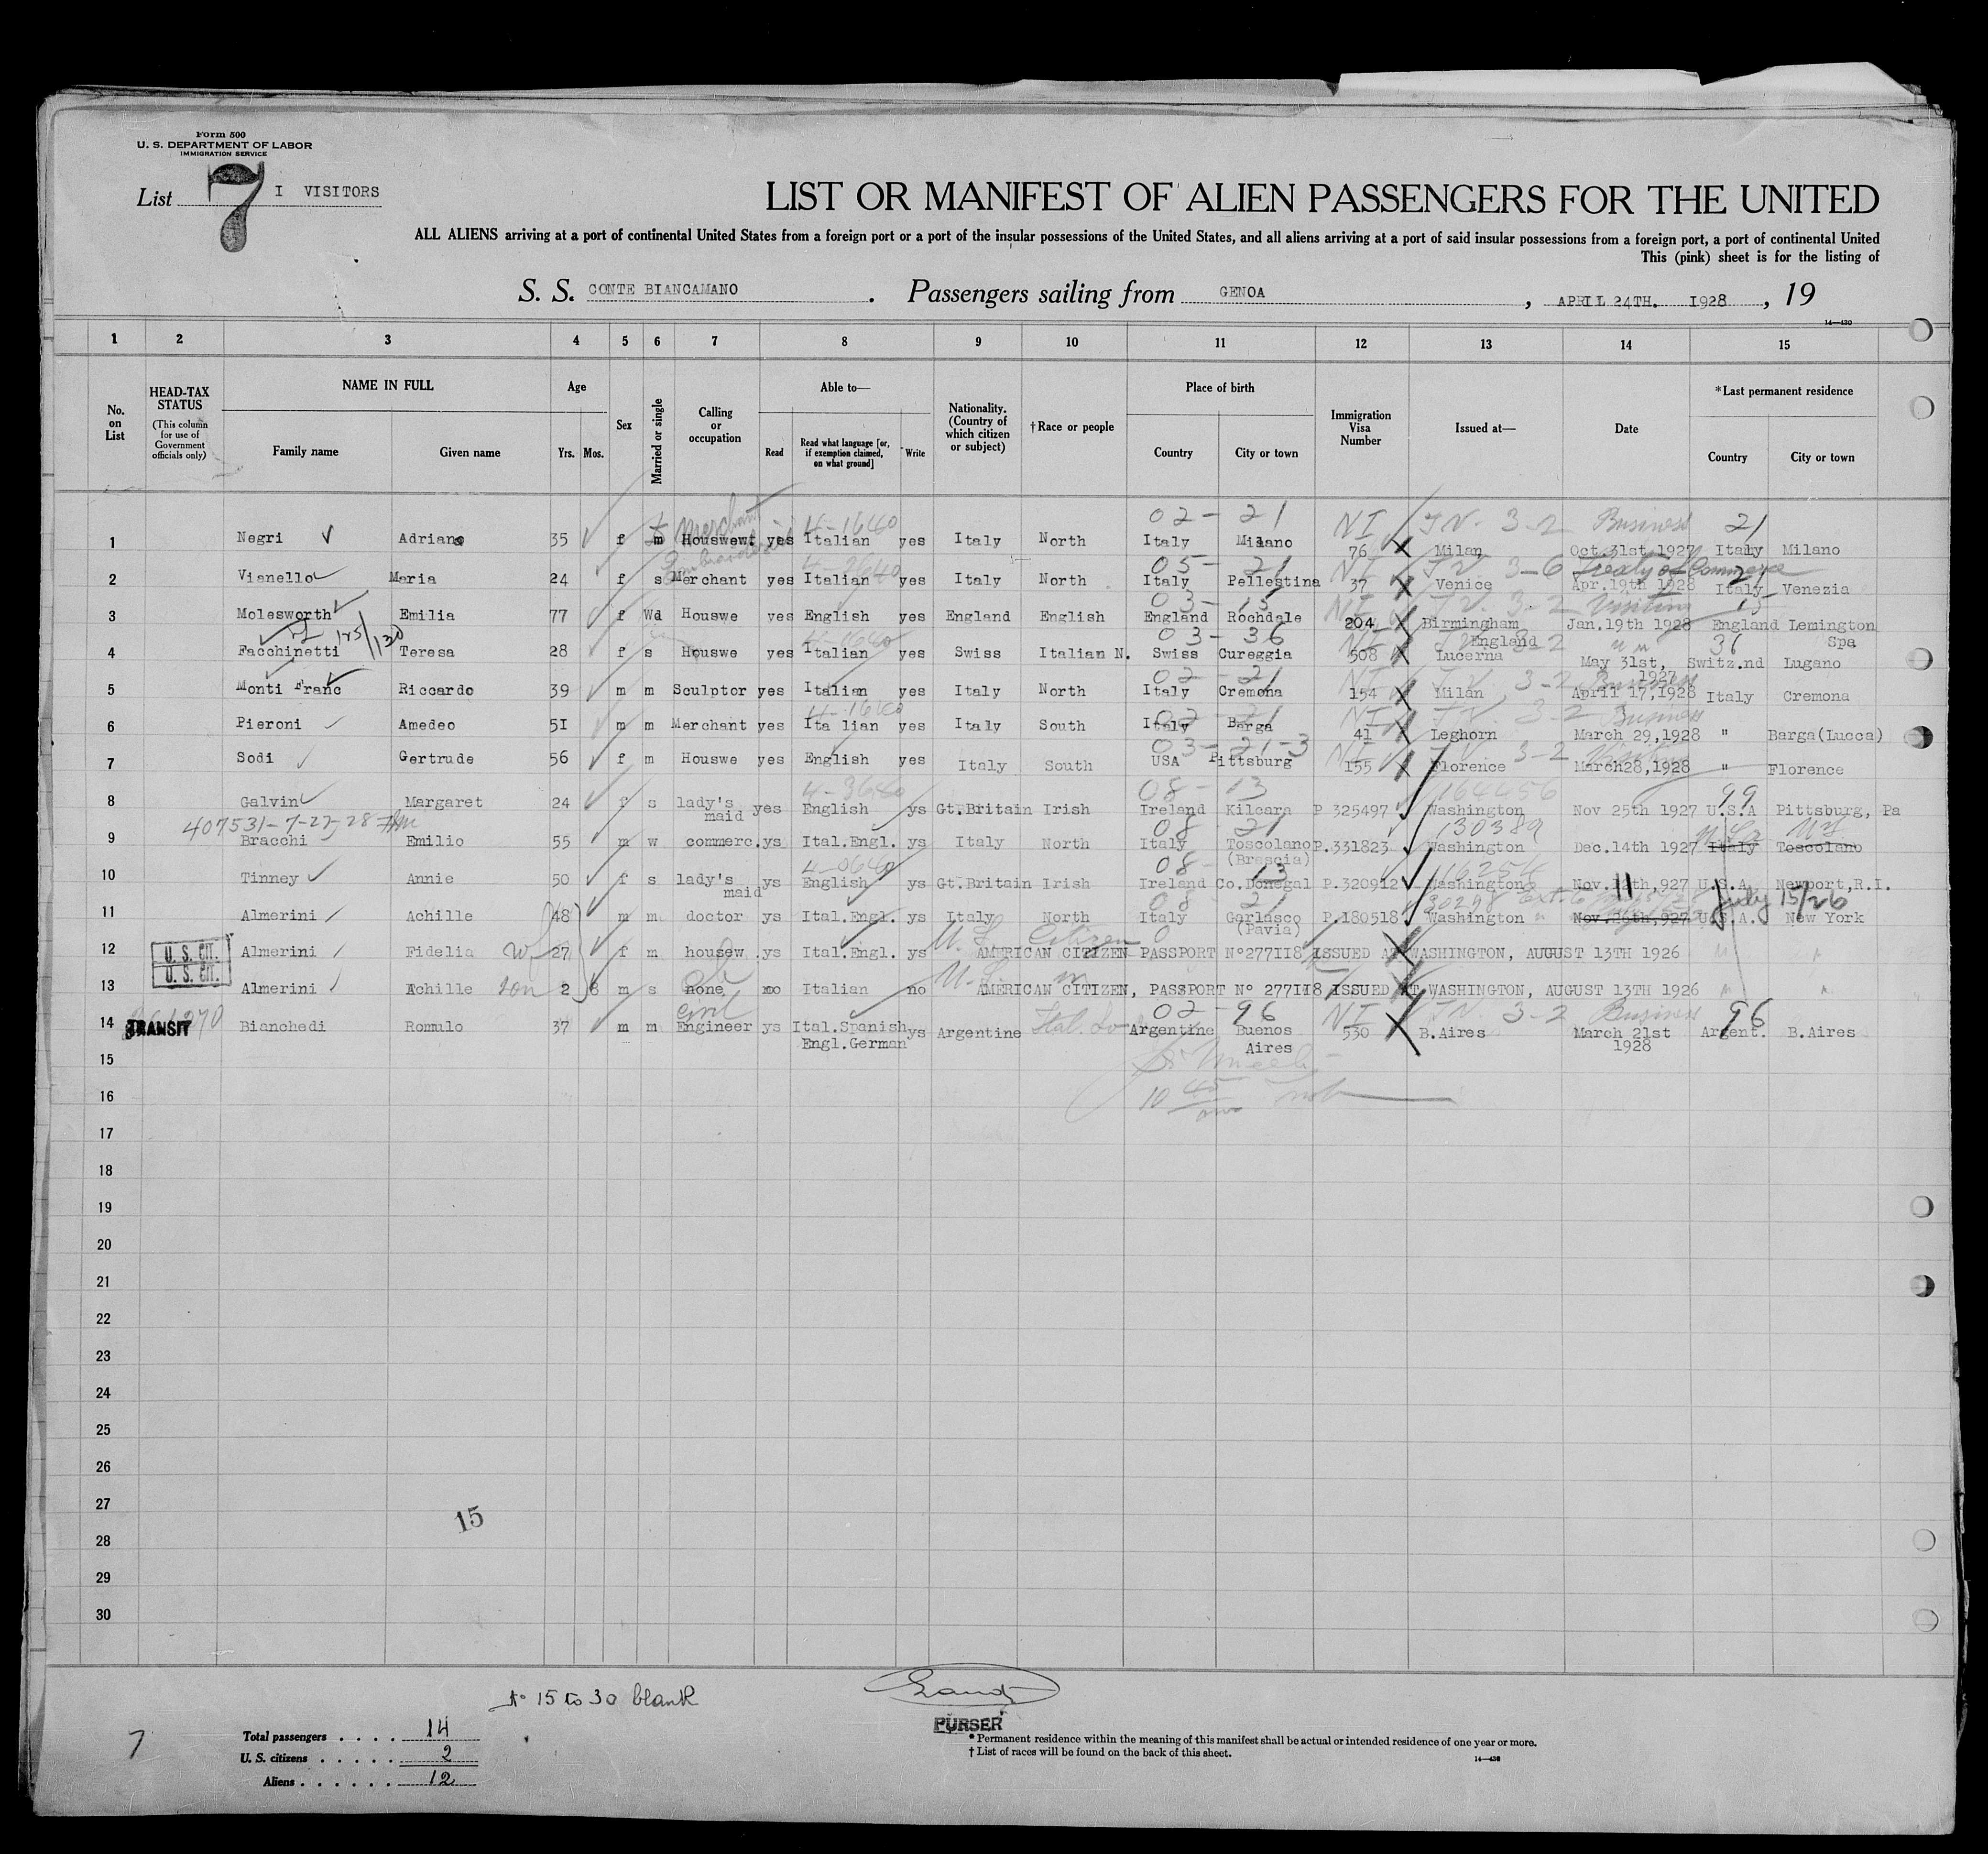 Form 500
U. S. DEPARTMENT OF LABOR
IMMIGRATION SERVICE
List 7 I VISITORS
LIST OR MANIFEST OF ALIEN PASSENGERS FOR THE UNITED
ALL ALIENS arriving at a port of continental United States from a foreign port or a port of the insular possessions of the United States, and all aliens arriving at a port of said insular possessions from a foreign port, a port of continental United
This (pink) sheet is for the listing of
S. S. CONTE BIANCAMANO . Passengers sailing from GENOA , APRIL 24TH. 1928 , 19
14—430
1 2 3 4 5 6 7 8 9 10 11 12 13 14 15
No. on List HEAD-TAX STATUS (This column for use of Government officials only) NAME IN FULL Family name Given name Age Yrs. Mos. Sex Married or single Calling or occupation Able to— Read Read what language [or, if exemption claimed, on what ground] Write Nationality. (Country of which citizen or subject) †Race or people Place of birth Country City or town Immigration Visa Number Issued at— Date *Last permanent residence Country City or town
Merchant 4-1640 02- 21 NI T.V. 3-2 Business 21
1 Negri Adriano 35 f m Houswe yes Italian yes Italy North Italy Milano 76 Milan Oct.31st.1927 Italy Milano
4-2640 05- 21 NI TV 3-6 Treaty of Commerce
2 Vianello Maria 24 f s Merchant yes Italian yes Italy North Italy Pellestina 37 Venice Apr.19th 1928 Italy Venezia
03- 15 NI T.V. 3-2 Visiting 15
3 Molesworth Emilia 77 f Wd Houswe yes English yes England English England Rochdale 204 Birmingham England Jan.19th 1928 England Lemington Spa
125/130 4-1640 03- 36 NI 3-2 36
4 Facchinetti Teresa 28 f s Houswe yes Italian yes Swiss Italian N. Swiss Cureggia 508 Lucerna May 31st, 1927 Switz.nd Lugano
02- 21 NI 3-2 Business
5 Monti Franc Riccardo 39 m m Sculptor yes Italian yes Italy North Italy Cremona 154 Milan April 17,1928 Italy Cremona
4-1640 02- 21 NI T.V. 3-2 Business
6 Pieroni Amedeo 51 m m Merchant yes Ita lian yes Italy South Italy Barga 41 Leghorn March 29,1928 " Barga(Lucca)
03- 21-3 NI T.V. 3-2
7 Sodi Gertrude 56 f m Houswe yes English yes Italy South USA Pittsburg 155 Florence March28,1928 " Florence
4-3640 08- 13 164456 99
8 Galvin Margaret 24 f s lady's maid yes English ys Gt.Britain Irish Ireland Kilcara P 325497 Washington Nov 25th 1927 U.S.A Pittsburg, Pa
407531-7-27-28 08- 21 130389
9 Bracchi Emilio 55 m w commerc. ys Ital.Engl. ys Italy North Italy Toscolano (Brescia) P.331823 Washington Dec.14th 1927 Italy Toscolano
4-0640 08- 13
10 Tinney Annie 50 f s lady's maid ys English ys Gt.Britain Irish Ireland Co.Donegal P.320912 Washington Nov.11th,927 U.S.A. Newport,R.I.
08- 21 30298 July 15/26
11 Almerini Achille 48 m m doctor ys Ital.Engl. ys Italy North Italy Garlasco (Pavia) P.180518 Washington Nov.26th,927 U.S.A. New York
U.S. Citizen
12 U. S. CIT. Almerini Fidelia W 27 f m housew. ys Ital.Engl. ys AMERICAN CITIZEN PASSPORT N°277118 ISSUED AT WASHINGTON, AUGUST 13TH 1926
13 U. S. CIT. Almerini Achille son 2 8 m s none no Italian no AMERICAN CITIZEN, PASSPORT N° 277118 ISSUED AT WASHINGTON, AUGUST 13TH 1926
Civil 02- 96 NI T.V. 3-2 Business 96
14 TRANSIT Bianchedi Romulo 37 m m Engineer ys Ital.Spanish Engl.German ys Argentine Argentine Buenos Aires 550 B.Aires March 21st 1928 Argent. B.Aires
15
16
17
18
19
20
21
22
23
24
25
26
27
15
28
29
30
N° 15 to 30 blank
PURSER
7
Total passengers . . . . 14
U. S. citizens . . . . . 2
Aliens . . . . . . 12
* Permanent residence within the meaning of this manifest shall be actual or intended residence of one year or more.
† List of races will be found on the back of this sheet.
14—430